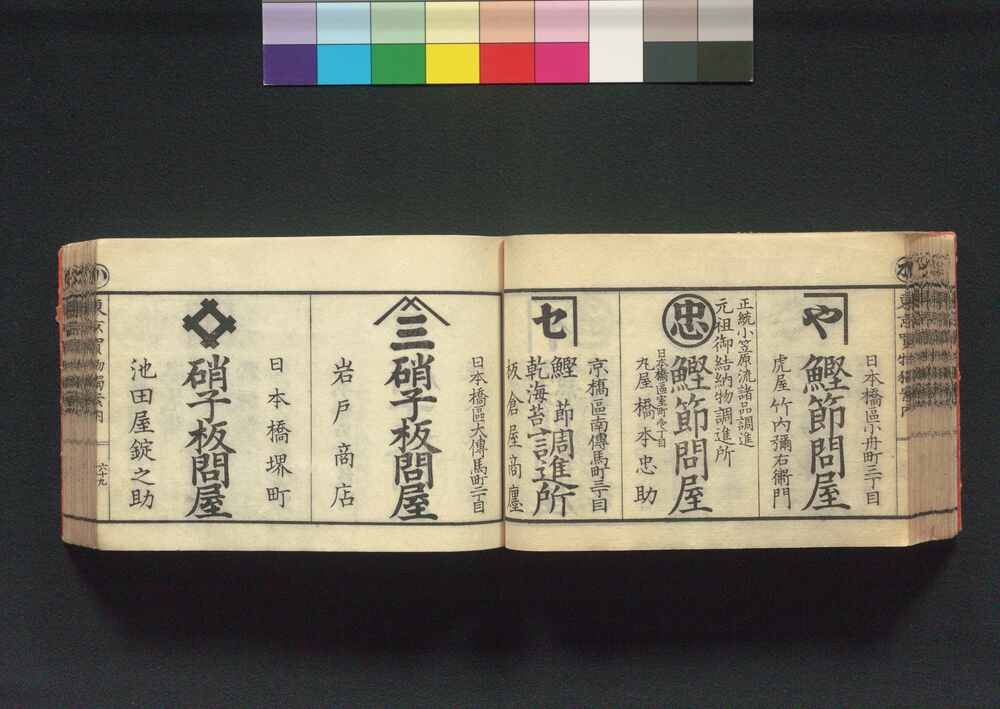 日本橋區小舟町三丁目
や
鰹節問屋
虎屋竹内彌右衛門
正統小笠原流諸品調進
元祖御結納物調進所
忠
鰹節問屋
日本橋區室町
丸屋橋本忠助
京橋區南傳馬町三丁目
セ
鰹節
乾海苔
調進所
板倉屋商廛
日本橋區大傳馬町二丁目
三
硝子板問屋
岩戸商店
日本橋堺町
硝子板問屋
池田屋錠之助
小
東京買物獨案内
六十九